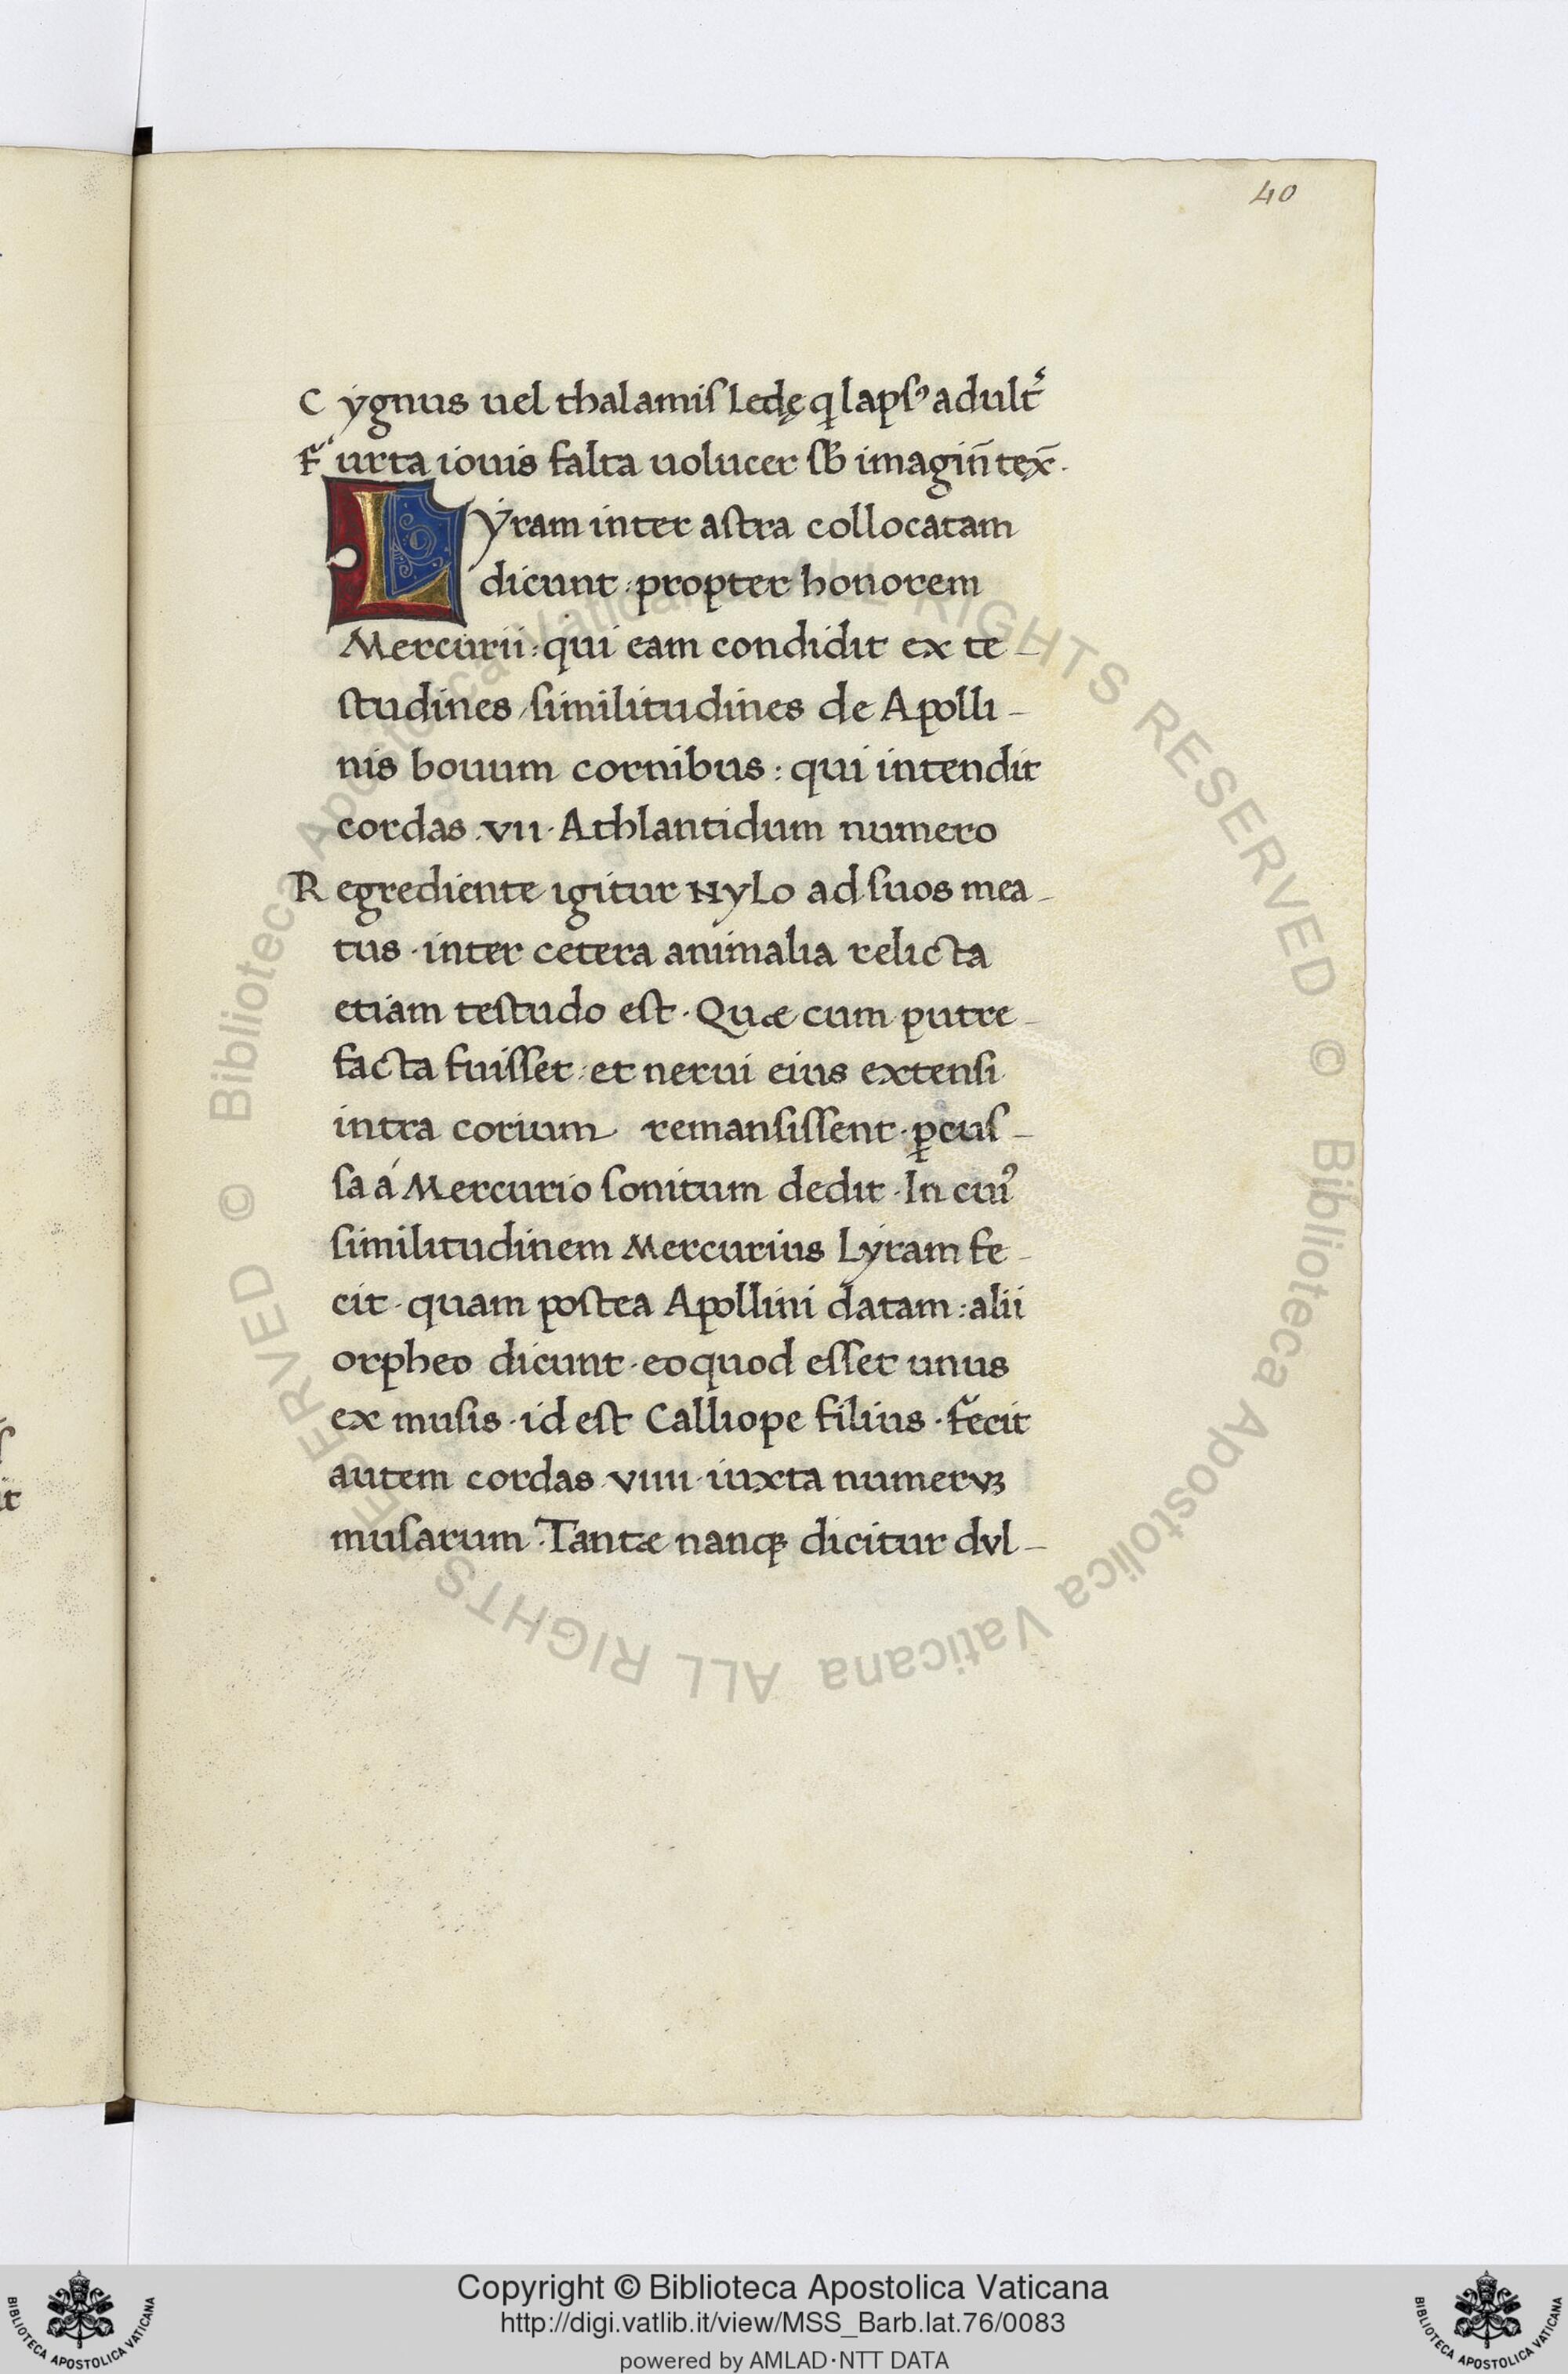 40
Cygnus uel thalamiſ Ledę ꝗ lapſꝰ adult͛
Furta iouis falta uolucer ſƀ imagin̄ tex̄.
Lyram inter aſtra collocatam
dicunt : propter honorem
Mercurii : qui eam condidit ex te-
ſtudines / ſimilitudines de Apolli-
nis bouum cornibus : qui intendit
cordas · vii · Athlantidum numero
Regrediente igitur Nylo ad ſuos mea-
tus · inter cetera animalia relicta
etiam teſtudo eſt · Quæ cum putre-
facta fuiſſet : et nerui eius extenſi
intra corium remanſiſſent · ꝑcuſ-
ſa á Mercurio ſonitum dedit · In cuiꝰ
ſimilitudinem Mercurius Lyram fe-
cit · quam poſtea Apollini datam : alii
orpheo dicunt · eoquod eſſet unus
ex muſis · id eſt Calliope filius · fecit
autem cordas · viiii · iuxta numervꝫ
muſarum · Tantæ nanqꝫ dicitur dvl-
© Biblioteca Apostolica Vaticana ALL RIGHTS RESERVED © Biblioteca Apostolica Vaticana ALL RIGHTS RESERVED
Copyright © Biblioteca Apostolica Vaticana
http://digi.vatlib.it/view/MSS_Barb.lat.76/0083
powered by AMLAD·NTT DATA
BIBLIOTECA APOSTOLICA VATICANA
BIBLIOTECA APOSTOLICA VATICANA